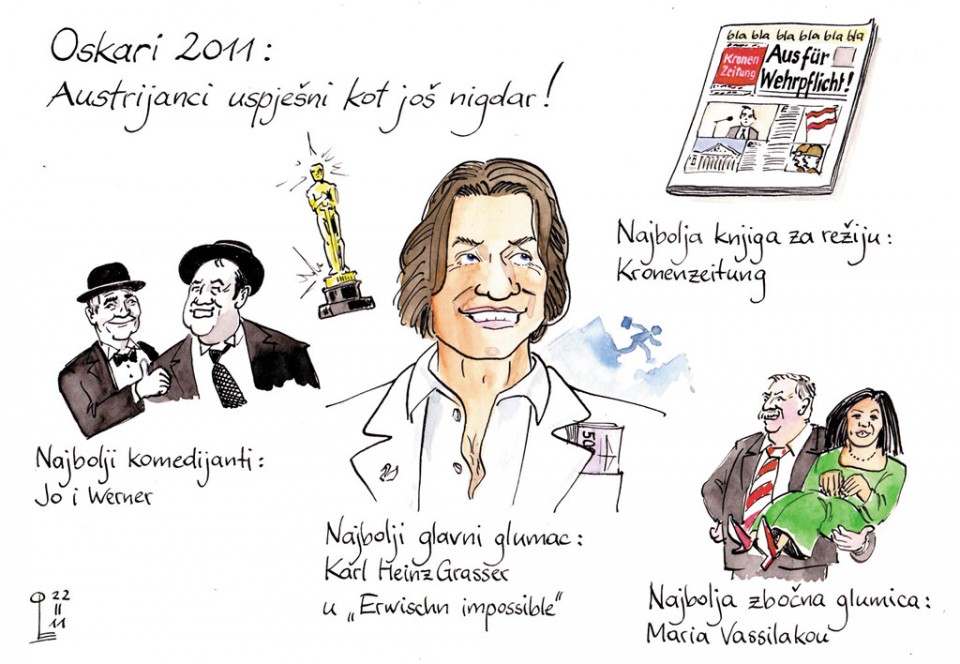 Oskari 2011:
Austrijanci uspješni kot još nigdar!
bla bla bla bla bla bla
Kronen
Zeitung
Aus für
Wehrpflicht!
Najbolja knjiga za režiju:
Kronenzeitung
Najbolji komedijanti:
Jo i Werner
50
Najbolji glavni glumac:
Karl Heinz Grasser
u „Erwischn impossible“
Najbolja zbočna glumica:
Maria Vassilakou
22
II
11